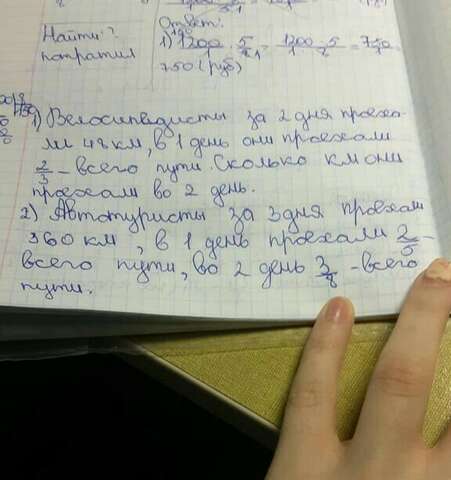 Ответ:
Найти:?
потратил
1) 1200/1 · 5/8 = 1200·5/1·8 = 750/1 =
750 (руб)
1) Велосипедисты за 2 дня проеха-
ли 48 км, в 1 день они проехали
2/3 - всего пути. Сколько км они
проехали во 2 день.
2) Автотуристы за 3 дня проехали
360 км, в 1 день проехали 2/5 -
всего пути, во 2 день 3/8 - всего
пути.